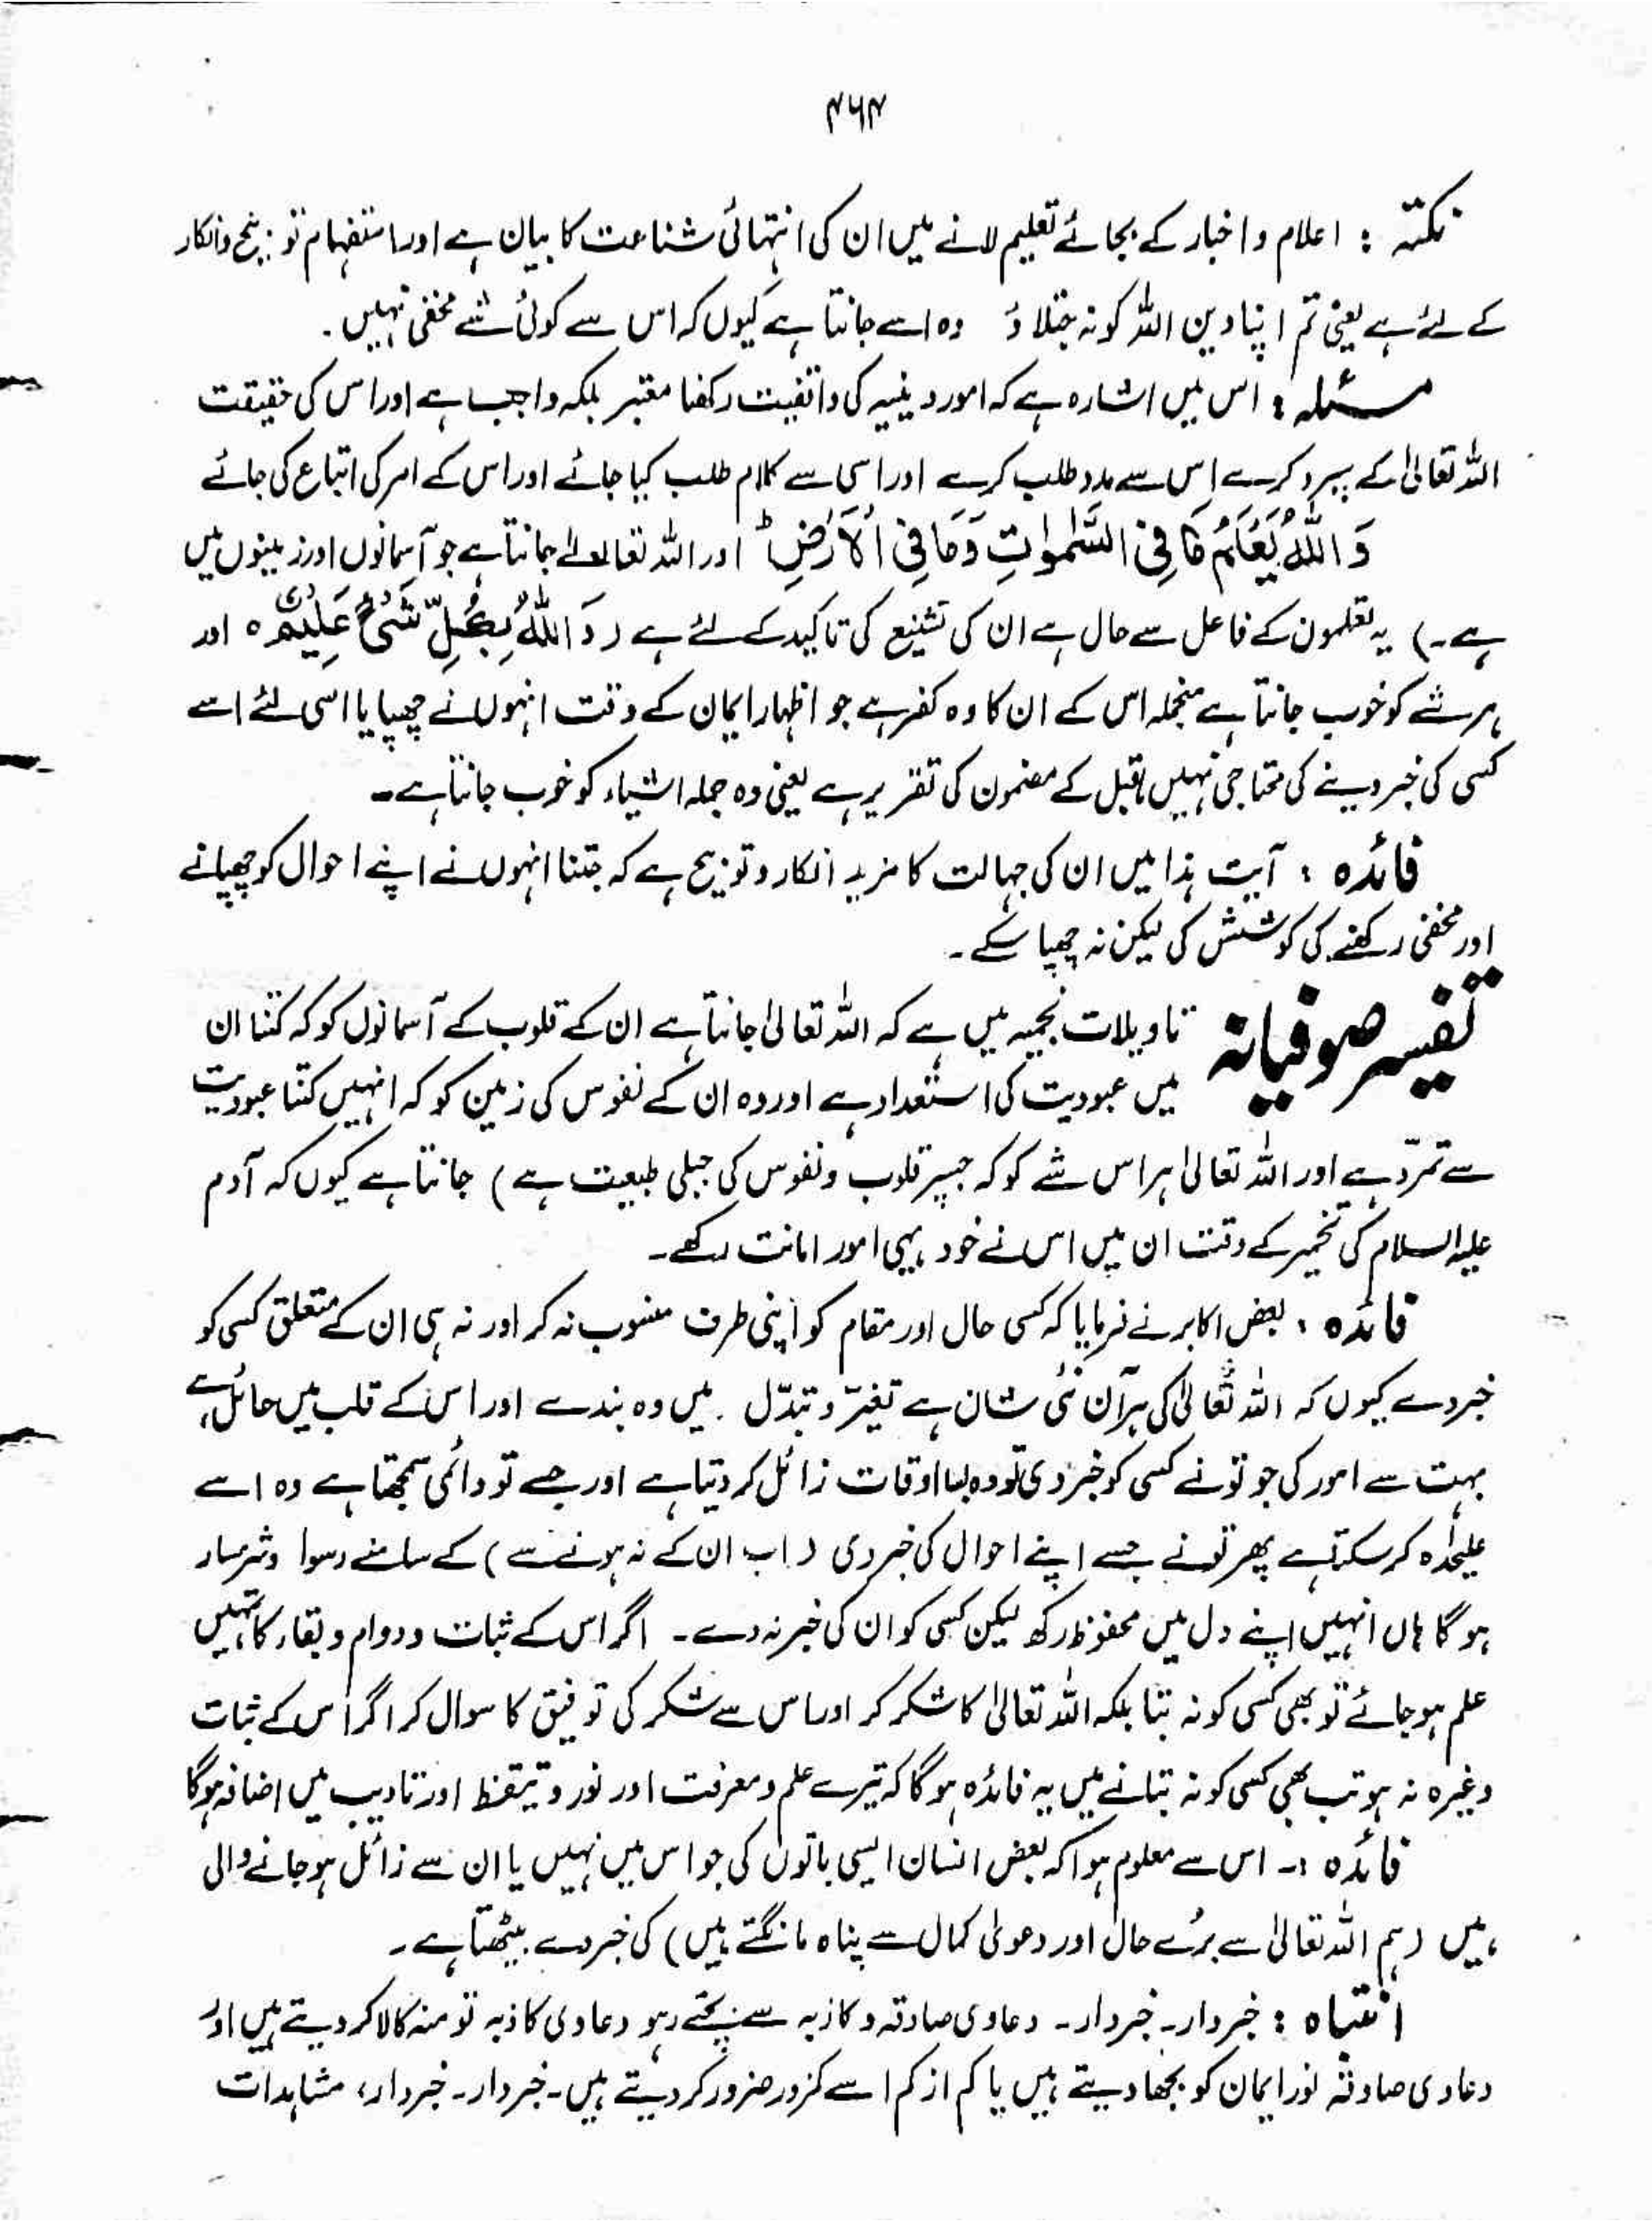 ۴۶۴
نکتہ : اعلام و اخبار کے بجائے تعلیم لانے میں ان کی انتہائی شناعت کا بیان ہے اور استفہام توبیخ و انکار
کے لئے ہے یعنی تم اپنا دین اللہ کو نہ جتلاؤ وہ اسے جانتا ہے کیوں کہ اس سے کوئی شے مخفی نہیں .
مسئلہ : اس میں اشارہ ہے کہ امور دینیہ کی واقفیت رکھنا معتبر بلکہ واجب ہے اور اس کی حقیقت
اللہ تعالیٰ کے سپرد کرے اس سے مدد طلب کرے اور اسی سے کلام طلب کیا جائے اور اس کے امر کی اتباع کی جائے
وَاللّٰهُ يَعْلَمُ مَا فِي السَّمٰوٰتِ وَمَا فِي الْاَرْضِ ؕ اور اللہ تعالےٰ جانتا ہے جو آسمانوں اور زمینوں میں
ہے۔) یہ تعلمون کے فاعل سے حال ہے ان کی تشنیع کی تاکید کے لئے ہے (وَاللّٰهُ بِكُلِّ شَيْءٍ عَلِيْمٌ ہ اور
ہر شے کو خوب جانتا ہے منجملہ اس کے ان کا وہ کفر ہے جو اظہار ایمان کے وقت انہوں نے چھپایا اسی لئے اسے
کسی کی خبر دینے کی محتاجی نہیں ماقبل کے مضمون کی تقریر ہے یعنی وہ جملہ اشیاء کو خوب جانتا ہے۔
فائدہ : آیت ہذا میں ان کی جہالت کا مزید انکار و توبیخ ہے کہ جتنا انہوں نے اپنے احوال کو چھپانے
اور مخفی رکھنے کی کوشش کی لیکن نہ چھپا سکے ۔
تفسیر صوفیانہ تاویلات نجمیہ میں ہے کہ اللہ تعالیٰ جانتا ہے ان کے قلوب کے آسمانوں کو کہ کتنا ان
میں عبودیت کی استعداد ہے اور وہ ان کے نفوس کی زمین کو کہ انہیں کتنا عبودیت
سے تمرّد ہے اور اللہ تعالیٰ ہر اس شے کو کہ جس پر قلوب و نفوس کی جبلی طبیعت ہے) جانتا ہے کیوں کہ آدم
علیہ السلام کی تخمیر کے وقت ان میں اس نے خود یہی امور امانت رکھے۔
فائدہ : بعض اکابر نے فرمایا کہ کسی حال اور مقام کو اپنی طرف منسوب نہ کر اور نہ ہی ان کے متعلق کسی کو
خبر دے کیوں کہ اللہ تعالیٰ کی ہر آن نئی شان ہے تغیّر و تبدّل میں وہ بندے اور اس کے قلب میں حائل ہے
بہت سے امور کی جو تو نے کسی کو خبر دی تو وہ بسا اوقات زائل کر دیتا ہے اور جسے تو دائمی سمجھتا ہے وہ اسے
علیحٰدہ کر سکتا ہے پھر تو نے جسے اپنے احوال کی خبر دی (اب ان کے نہ ہونے سے) کے سامنے رسوا و شرمسار
ہوگا ہاں انہیں اپنے دل میں محفوظ رکھ لیکن کسی کو ان کی خبر نہ دے۔ اگر اس کے ثبات و دوام و بقاء کا تمہیں
علم ہو جائے تو بھی کسی کو نہ بتا بلکہ اللہ تعالیٰ کا شکر کر اور اس سے شکر کی توفیق کا سوال کر اگر اس کے ثبات
وغیرہ نہ ہو تب بھی کسی کو نہ بتانے میں یہ فائدہ ہوگا کہ تیرے علم و معرفت اور نور و تیقظ اور تادیب میں اضافہ ہوگا
فائدہ :۔ اس سے معلوم ہوا کہ بعض انسان ایسی باتوں کی جو اس میں نہیں یا ان سے زائل ہو جانے والی
ہیں (ہم اللہ تعالیٰ سے بُرے حال اور دعویٰ کمال سے پناہ مانگتے ہیں) کی خبر دے بیٹھتا ہے ۔
انتباہ : خبردار۔ خبردار۔ دعاوی صادقہ و کاذبہ سے بچتے رہو دعاوی کاذبہ تو منہ کالا کر دیتے ہیں اور
دعاوی صادقہ نور ایمان کو بجھا دیتے ہیں یا کم از کم اسے کمزور ضرور کر دیتے ہیں۔ خبردار۔ خبردار، مشاہدات